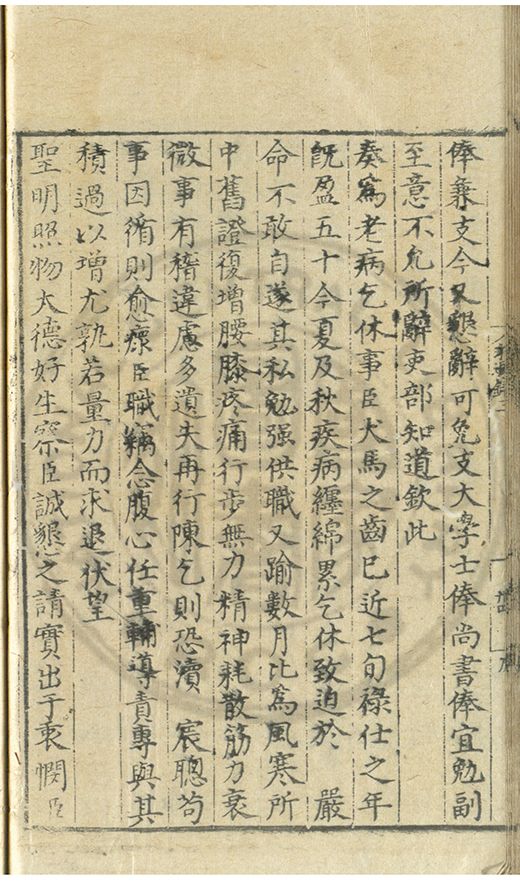 俸兼支今又懇辭可免支大學士俸尚書俸宜勉副
至意不允所辭吏部知道欽此
奏為老病乞休事臣犬馬之齒已近七旬祿仕之年
既盈五十今夏及秋疾病纏綿累乞休致迫於 嚴
命不敢自遂其私勉强供職又踰數月比為風寒所
中舊證復增腰膝疼痛行步無力精神耗散筋力衰
微事有稽違慮多遺失再行陳乞則恐瀆 宸聰苟
事因循則愈瘝臣職竊念腹心任重輔導責專與其
積過以增尤孰若量力而求退伏望
聖明照物大德好生察臣誠懇之請實出于衷憫臣